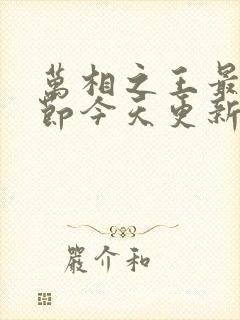 萬相之王最
節今天更新
嚴介和